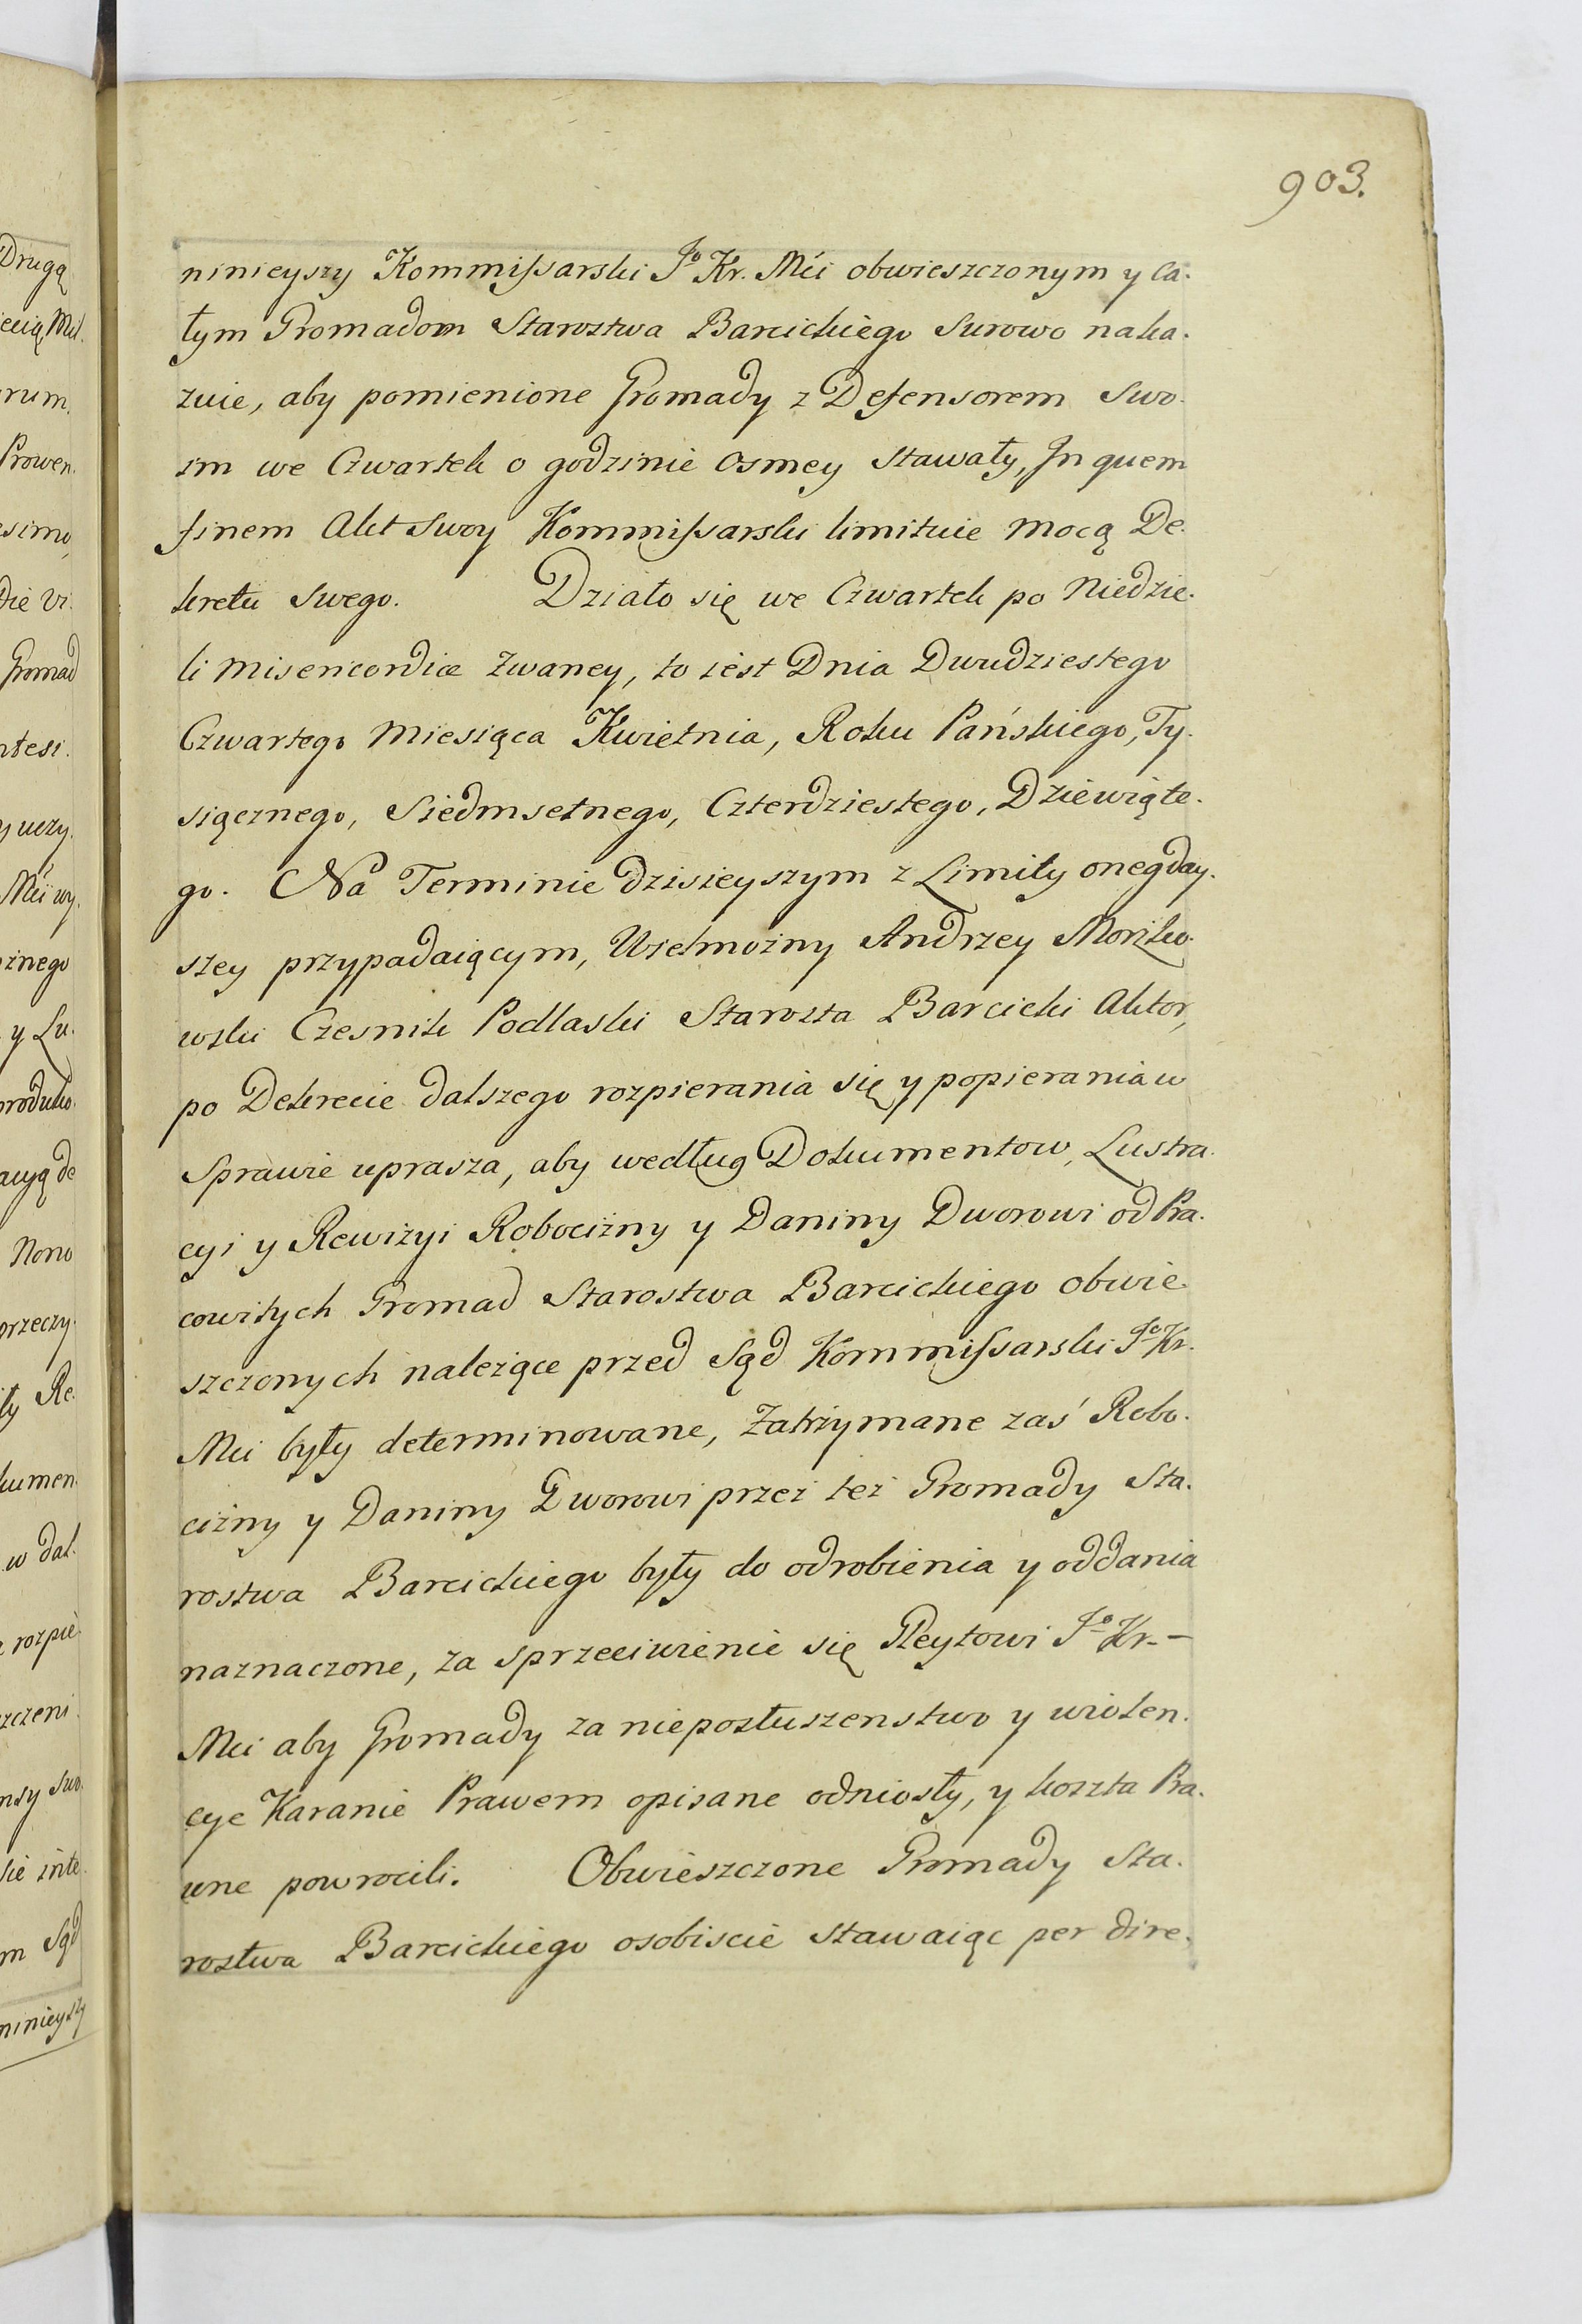 903.
ninieyszy Kommissarski Jo Kr. Mći obwieszczonym y ca-
łym Gromadom Starostwa Barcickiego surowo naka-
zuie, aby pomienione Gromady z Defensorem swo-
im we Czwartek o godzinie osmey stawały, In quem
finem Akt swoy Kommissarski limituie mocą De-
kretu swego. Działo się we Czwartek po Niedzie-
li Misericordiæ zwaney, to iest Dnia Dwudziestego
Czwartego Miesiąca Kwietnia, Roku Pańskiego, Ty-
siącznego, Siedmsetnego, Czterdziestego, Dziewiąte-
go. Na Terminie dzisieyszym z Limity onegday-
szey przypadaiącym, Wielmożny Andrzey Morsko-
wski Czesnik Podlaski Starosta Barcicki Aktor,
po Dekrecie dalszego rozpierania się y popierania w
sprawie uprasza, aby według Dokumentow, Lustra-
cyi y Rewizyi Robocizny y Daniny Dworowi od Pra-
cowitych Gromad Starostwa Barcickiego obwie-
szczonych należące przed Sąd Kommissarski Jo Kr.
Mci były determinowane, Zatrzymane zaś Robo-
cizny y Daniny Dworowi przez też Gromady Sta-
rostwa Barcickiego były do odrobienia y oddania
naznaczone, za sprzeciwienie się Gleytowi Jo Kr. -
Mci aby Gromady za nieposłuszenstwo y wiolen-
cye Karanie Prawem opisane odniosły, y koszta Pra-
wne powrocili. Obwieszczone Gromady Sta-
rostwa Barcickiego osobiscie stawaiąc per dire-